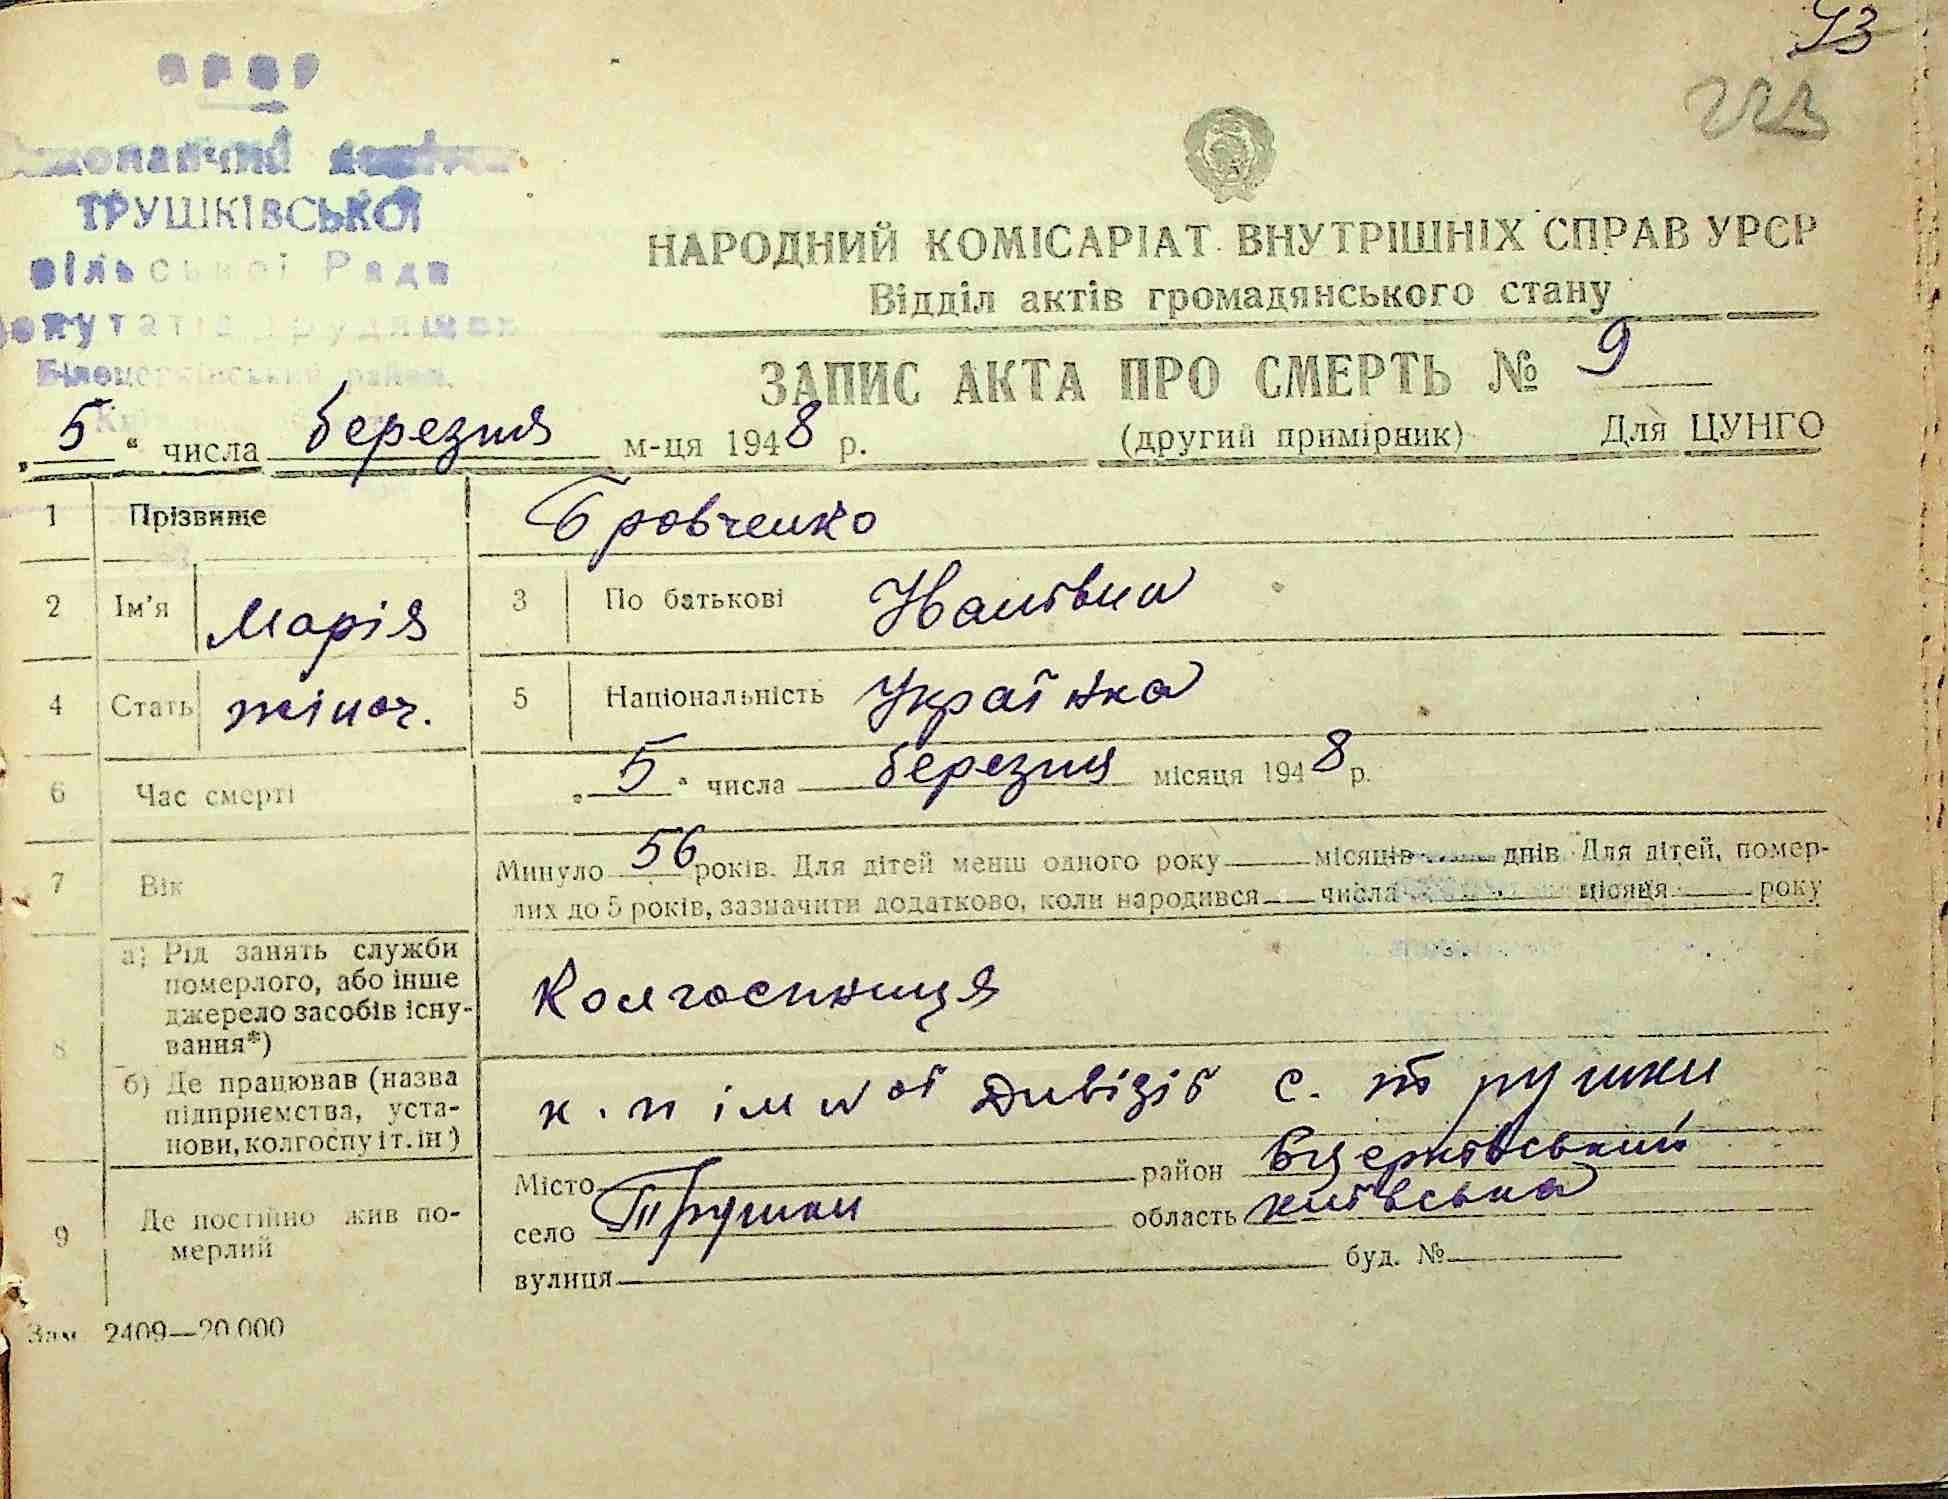 43
223
УРСР
Виконавчий комітет
ТРУШКІВСЬКОЇ
сільської Ради
депутатів трудящих
Білоцерківський район,
НАРОДНИЙ КОМІСАРІАТ ВНУТРІШНІХ СПРАВ УРСР
Відділ актів громадянського стану
ЗАПИС АКТА ПРО СМЕРТЬ № 9
„5“ числа березня м-ця 1948 р. (другий примірник) Для ЦУНГО
1 Прізвище Бровченко
2 Ім'я Марія 3 По батькові Іванівна
4 Стать жіноч. 5 Національність Українка
6 Час смерті „5“ числа березня місяця 1948 р.
7 Вік Минуло 56 років. Для дітей менш одного року місяців днів Для дітей, помер-
лих до 5 років, зазначити додатково, коли народився числа місяця року
8 а) Рід занять служби
померлого, або інше
джерело засобів існу-
вання*) Колгоспниця
б) Де працював (назва
підприємства, уста-
нови, колгоспу і т. ін.) к. п ім дивізії с. Трушки
9 Де постійно жив по-
мерлий
Місто район Бцерківський
село Трушки область київська
вулиця буд. №
Зам. 2409—20.000